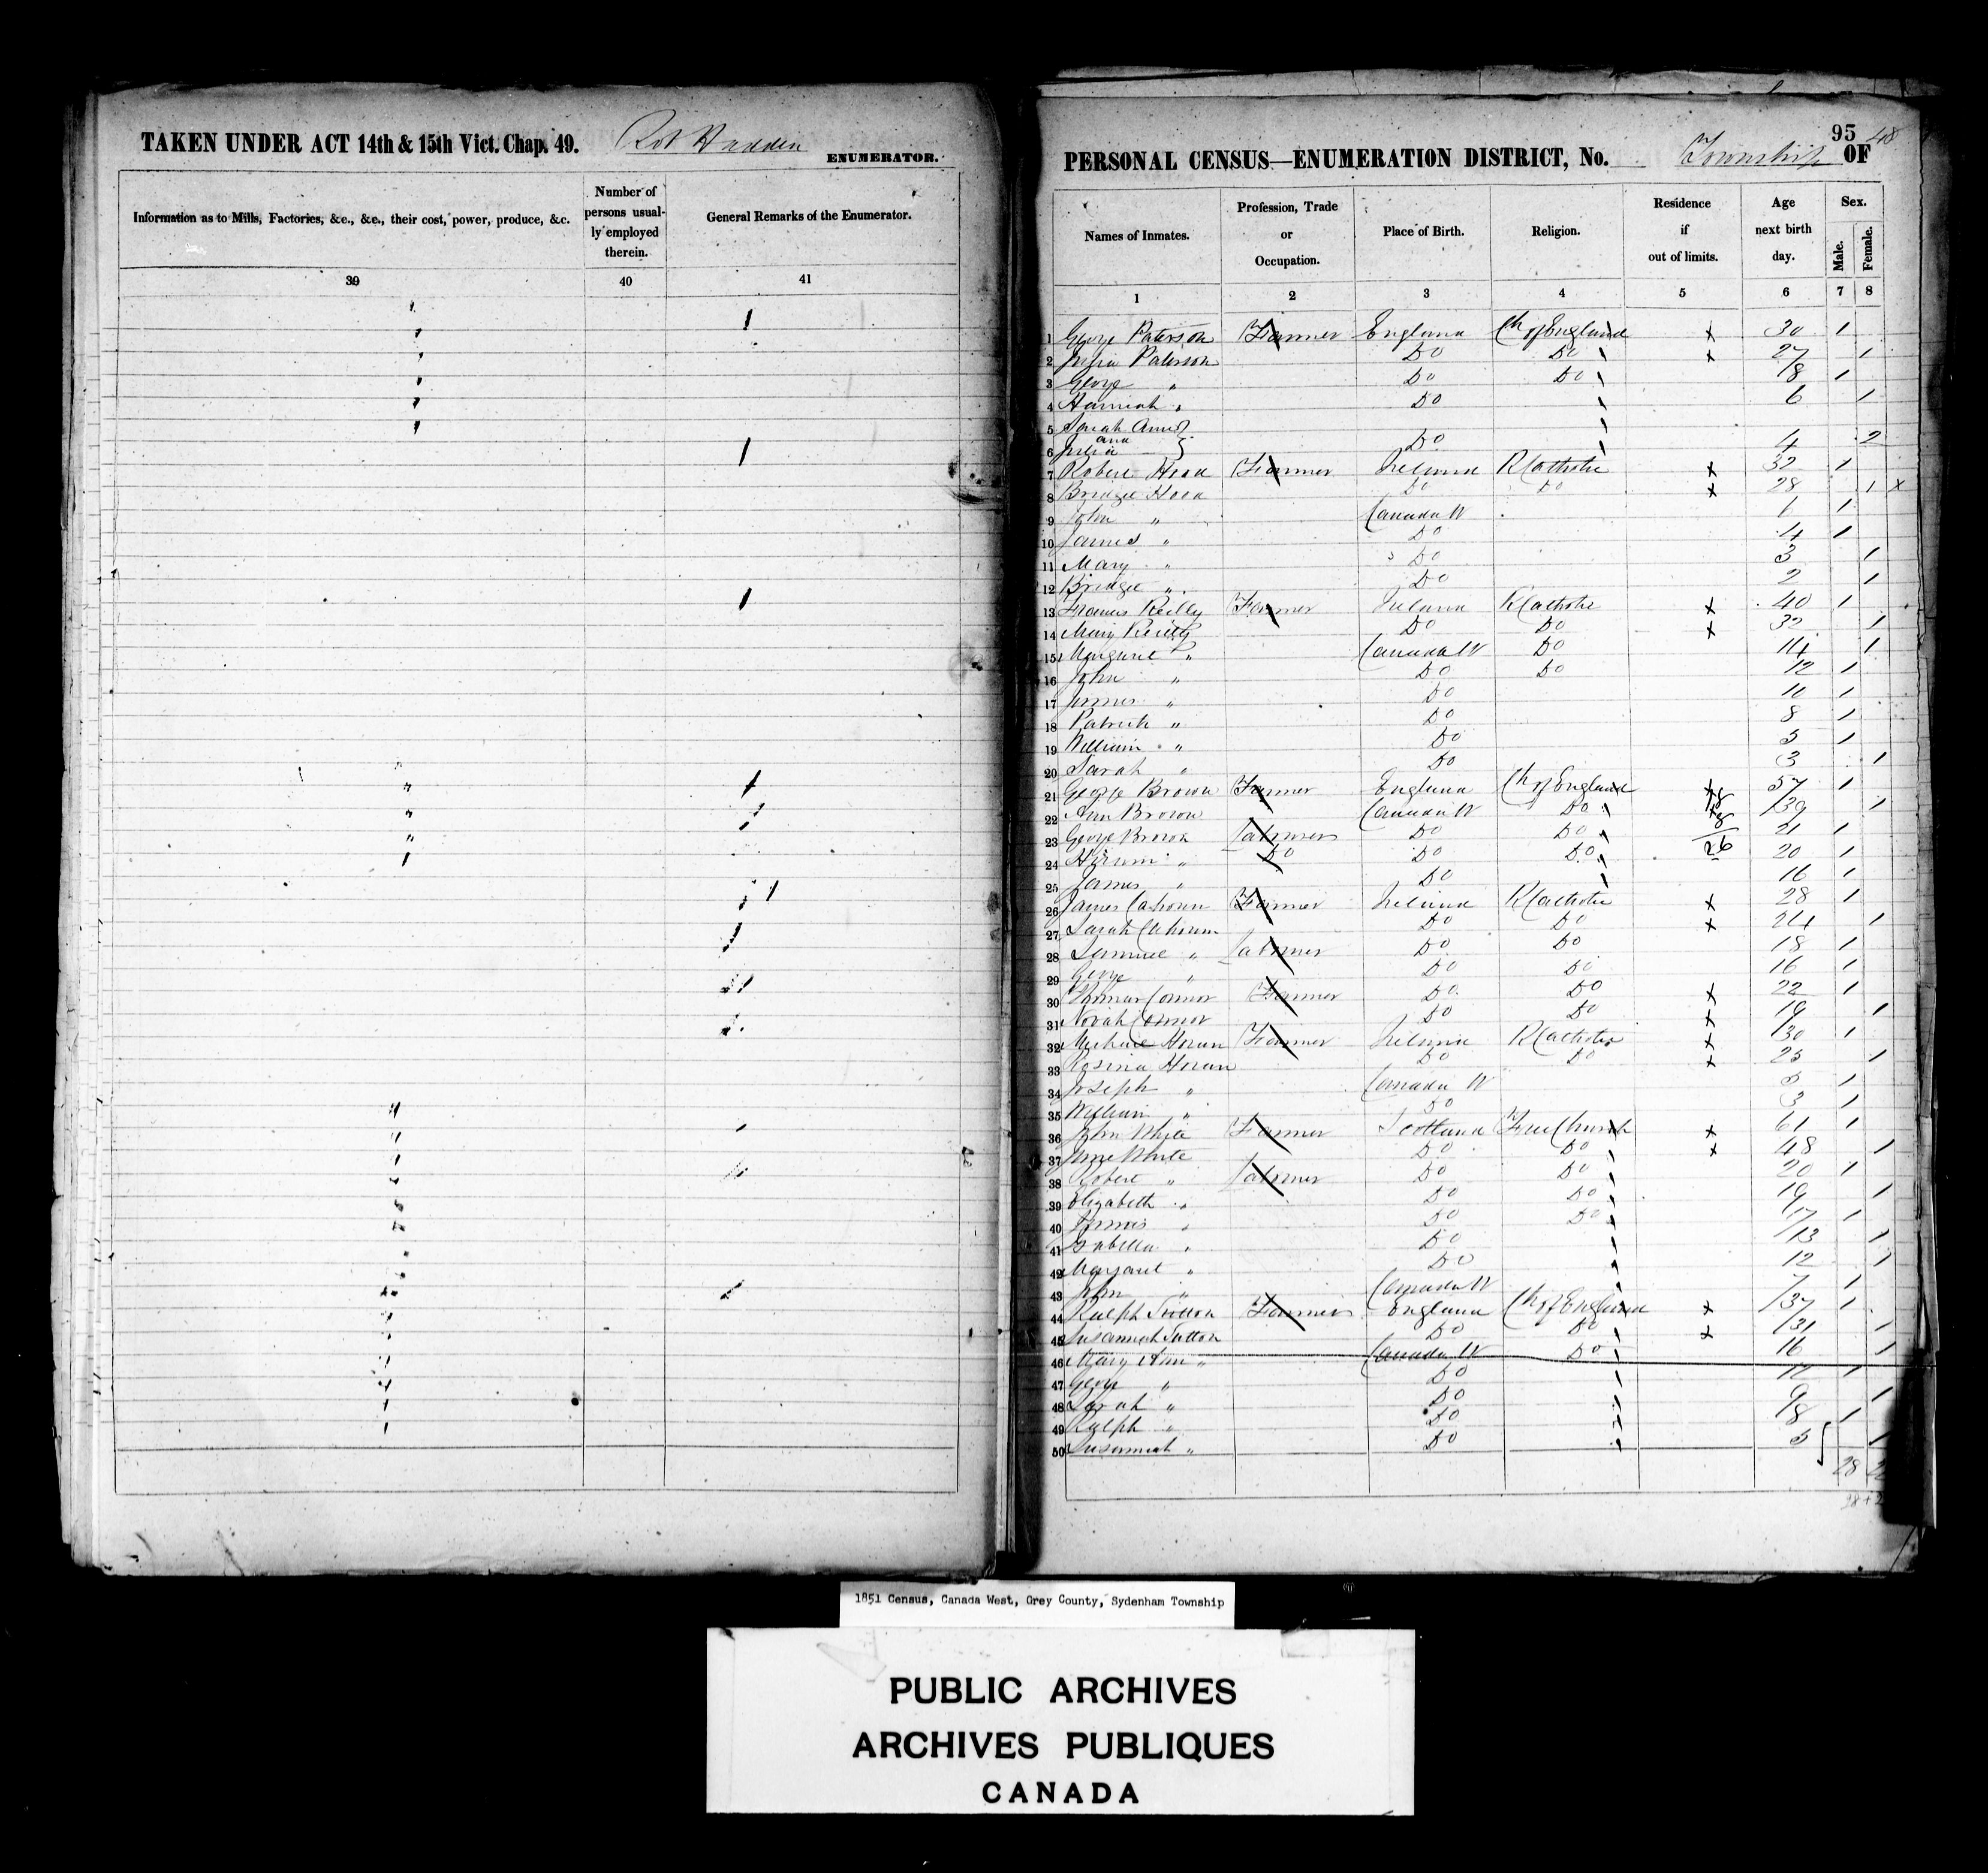 TAKEN UNDER ACT 14th & 15th Vict. Chap. 49. ENUMERATOR.
Information as to Mills, Factories, &c., &c., their cost, power, produce, &c.
Number of persons usual-
ly employed
therein.
General Remarks of the Enumerator.
39 40 41
95
PERSONAL CENSUS—ENUMERATION DISTRICT, No. Township OF
Names of Inmates.
Profession, Trade
or
Occupation.
Place of Birth.
Religion.
Residence
if
out of limits.
Age
next birth
day.
Sex.
Male.
Female.
1 2 3 4 5 6 7 8
1 George Paterson Farmer England Ch of England x 30 1
2 Paterson Do Do x 27 1
3 George " Do Do 8 1
4 Hannah " Do 6 1
5 Sarah Ann
6 and Julia Do 4 2
7 Robert Farmer Ireland R Catholic x 32 1
8 Bridget Do Do x 28 1 x
9 John " Canada W 6 1
10 James " Do 4 1
11 Mary " Do 3 1
12 Bridget " Do 2 1
13 Francis Reilly Farmer Ireland R Catholic x 40 1
14 Mary Reilly Do Do x 32 1
15 Margaret " Canada W Do 14 1
16 John " Do Do 12 1
17 James " Do 10 1
18 Patrick " Do 8 1
19 William " Do 5 1
20 Sarah " Do 3 1
21 George Brown Farmer England Ch of England x 57 1
22 Ann Brown Canada W Do x 39 1
23 George Brown Labourer Do Do 21 1
24 Hiram " Do Do Do 26 20 1
25 James " Do 16 1
26 James Calhoun Farmer Ireland R Catholic x 28 1
27 Sarah Calhoun Do Do x 24 1
28 Samuel " Labourer Do Do 18 1
29 George " Do Do 16 1
30 Thomas Connor Farmer Do Do x 22 1
31 Norah Connor Do Do x 19 1
32 Michael Horan Farmer Ireland R Catholic x 30 1
33 Rosina Horan Do Do x 25 1
34 Joseph " Canada W 5 1
35 William " Do 3 1
36 John White Farmer Scotland Free Church x 61 1
37 Jane White Do Do x 48 1
38 Robert " Labourer Do Do 20 1
39 Elizabeth " Do Do 19 1
40 " Do Do 17 1
41 Isabella " Do 13 1
42 Margaret " Do 12 1
43 John " Canada W 7 1
44 Ralph Farmer England Ch of England x 37 1
45 Susannah Sutton Do Do x 31 1
46 Mary Ann " Canada W Do 16 1
47 George " Do 12 1
48 Sarah " Do 9 1
49 Ralph " Do 8 1
50 Susannah " Do 5 1
28
1851 Census, Canada West, Grey County, Sydenham Township
PUBLIC ARCHIVES
ARCHIVES PUBLIQUES
CANADA